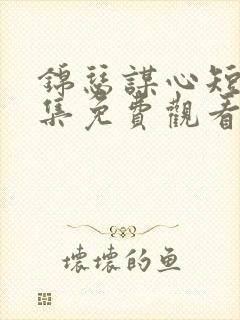 錦瑟謀心短
集免費觀看
壞壞的鱼